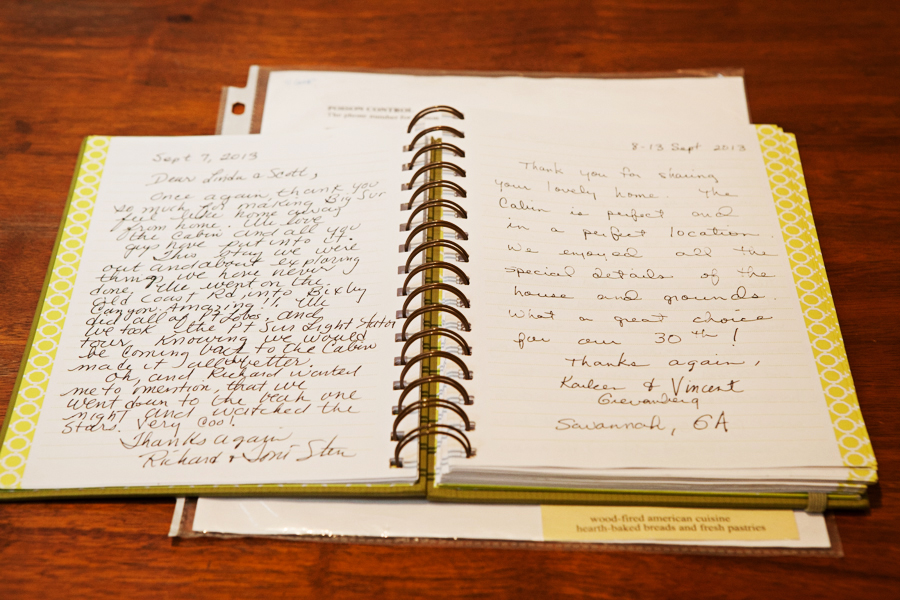 POISON CONTROL
The phone number for
Sept 7, 2013
Dear Linda & Scott,
Once again, thank you
so much for making Big Sur
feel like home away
from home. We love
the cabin and all you
guys have put into it.
This stay we were
out and about exploring
things we have never
done. We went on the
Old Coast Rd. into Bixby
Canyon. Amazing!! We
did all of Pt Lobos, and
we took the Pt Sur Light Station
tour. Knowing we would
be coming back to the Cabin
made it all better.
Oh, and Richard wanted
me to mention, that we
went down to the beach one
night and watched the
stars. Very Cool!
Thanks again
Richard & Toni Stein
8-13 Sept 2013
Thank you for sharing
your lovely home. The
Cabin is perfect and
in a perfect location.
We enjoyed all the
special details of the
house and grounds.
What a great choice
for our 30th!
Thanks again,
& Vincent
Savannah, GA
wood-fired american cuisine
hearth-baked breads and fresh pastries